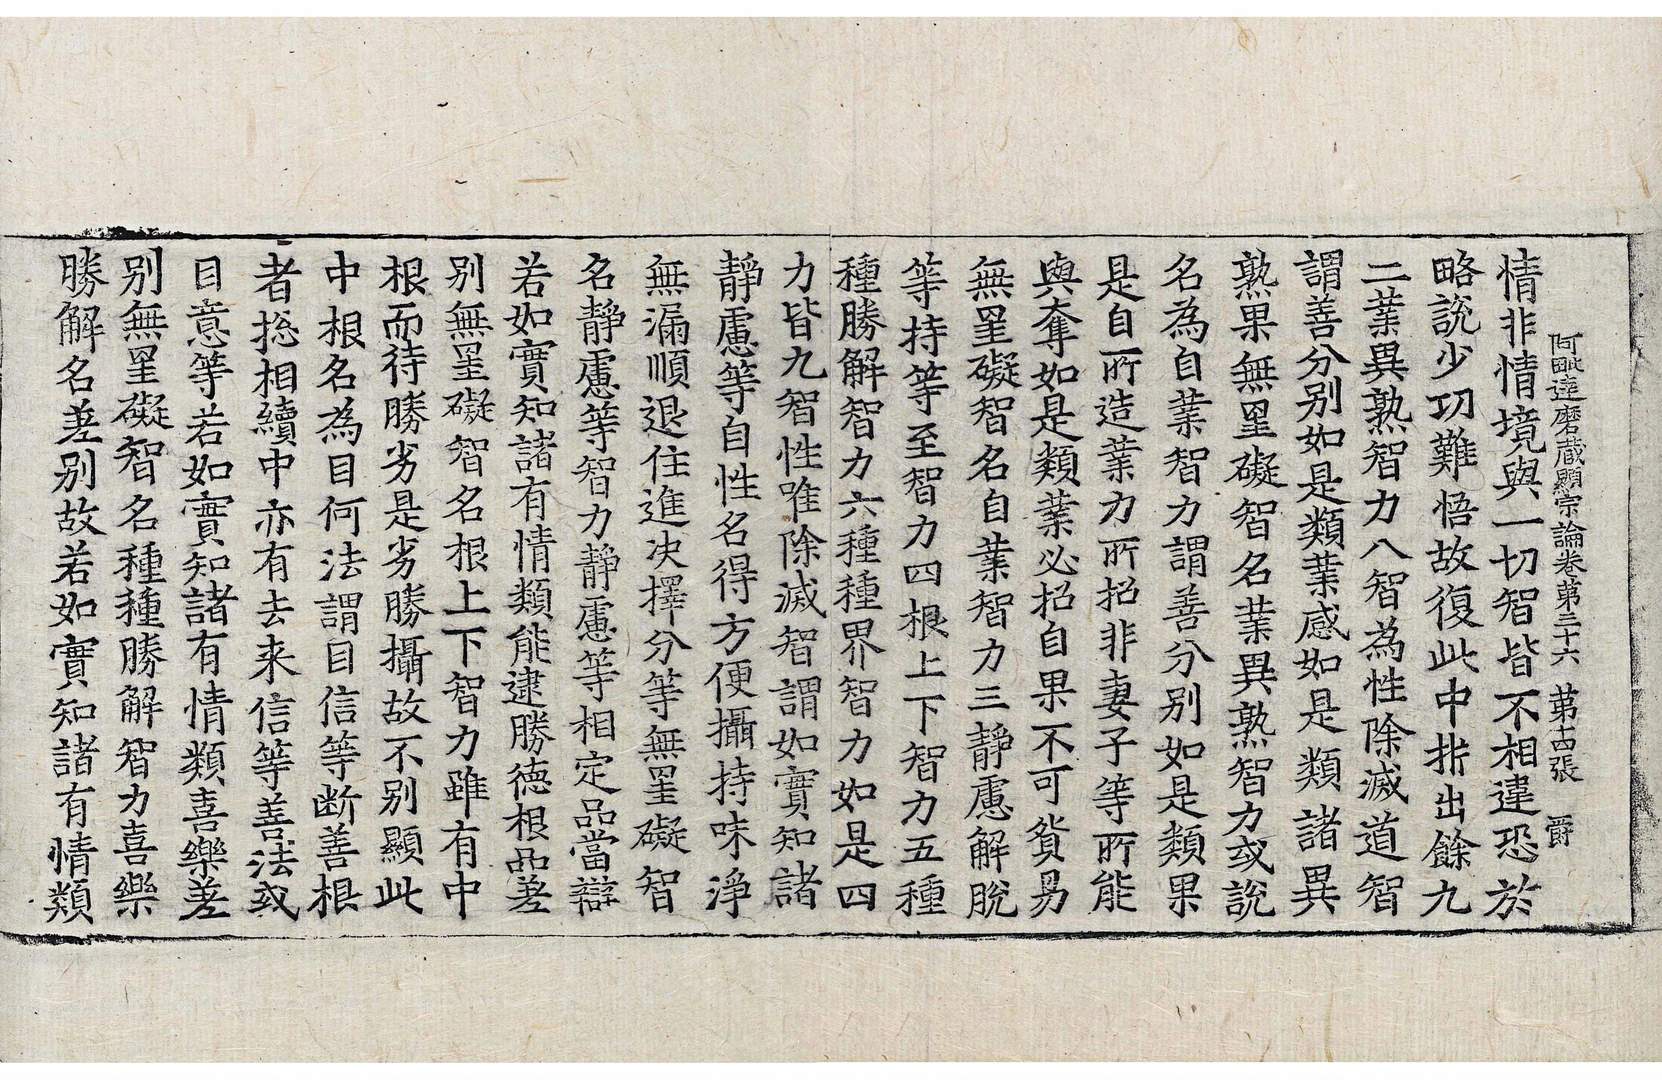 阿毗達磨藏顯宗論卷第三十六 第十四張 爵
情非情境與一切智皆不相違恐於
略說少功難悟故復此中指出餘九
二業異熟智力八智為性除滅道智
謂善分別如是類業感如是類諸異
熟果無罣礙智名業異熟智力或說
名為自業智力謂善分別如是類果
是自所造業力所招非妻子等所能
與奪如是類業必招自果不可貿易
無罣礙智名自業智力三靜慮解脫
等持等至智力四根上下智力五種
種勝解智力六種種界智力如是四
力皆九智性唯除滅智謂如實知諸
靜慮等自性名得方便攝持味淨
無漏順退住進決擇分等無罣礙智
名靜慮等智力靜慮等相定品當辯
若如實知諸有情類能逮勝德根品差
別無罣礙智名根上下智力雖有中
根而待勝劣是劣勝攝故不別顯此
中根名為目何法謂目信等斷善根
者揔相續中亦有去来信等善法或
目意等若如實知諸有情類喜樂差
別無罣礙智名種種勝解智力喜樂
勝解名差別故若如實知諸有情類